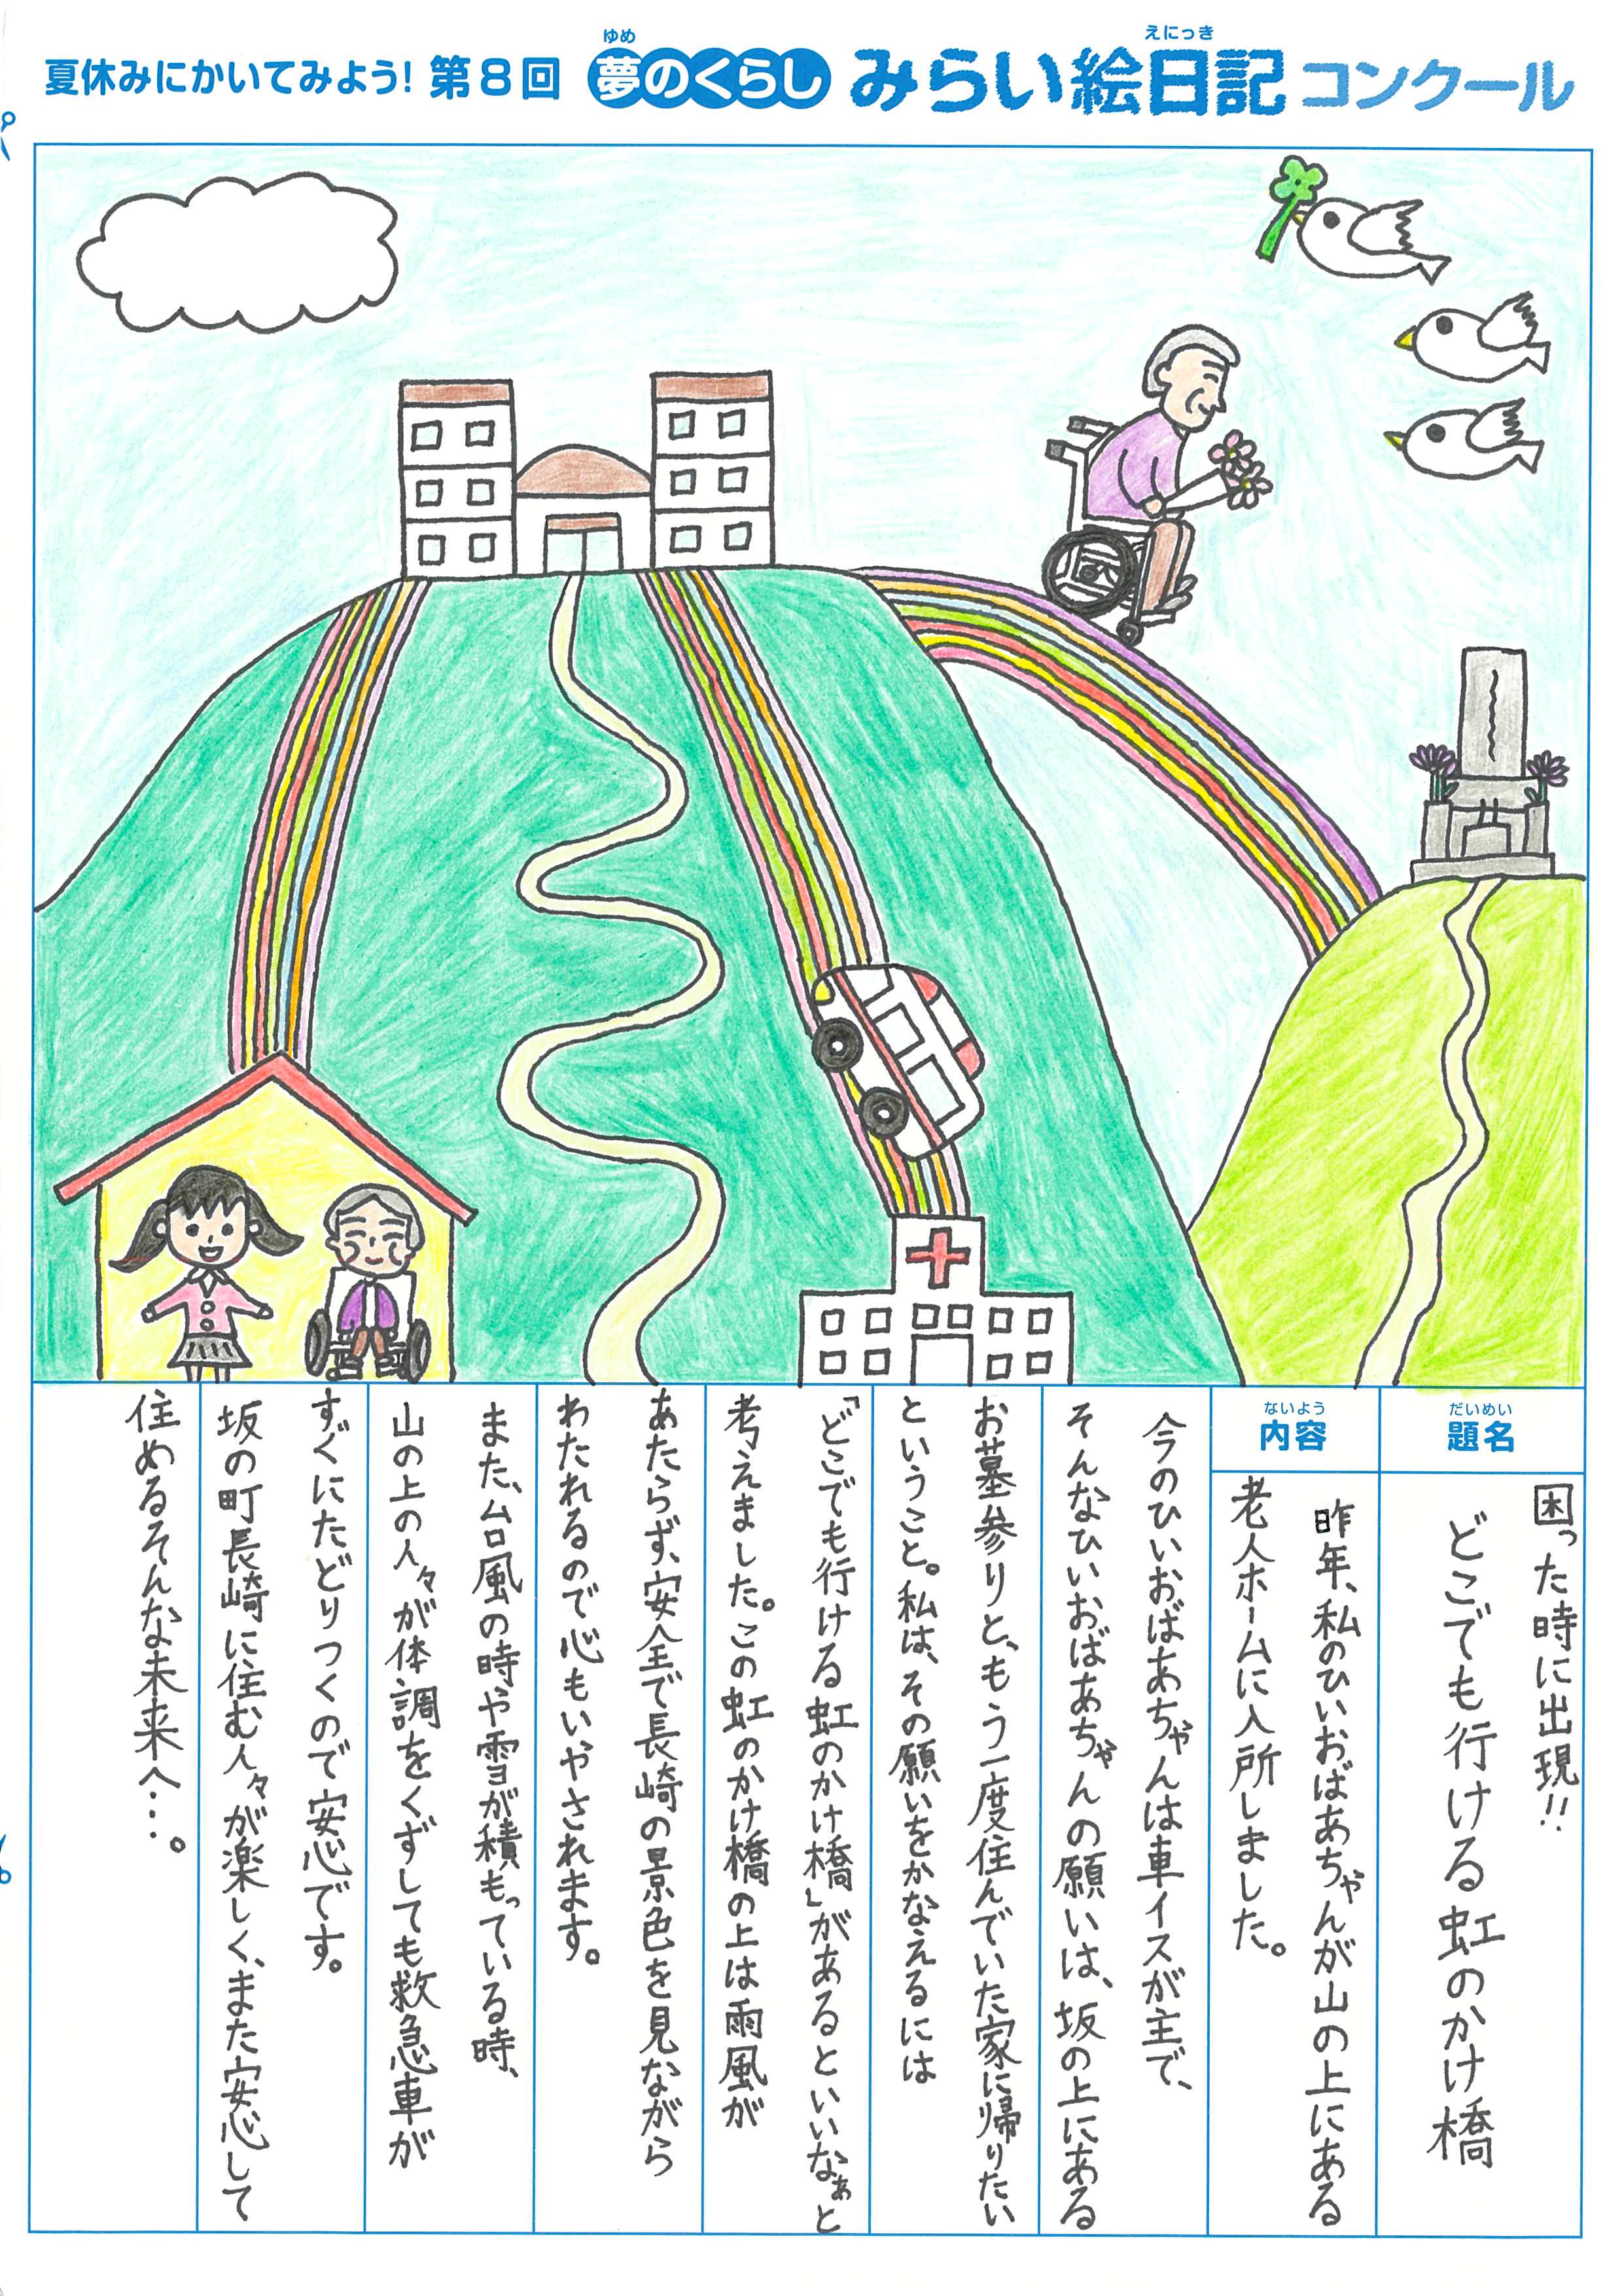 夏休みにかいてみよう! 第8回 夢のくらし みらい絵日記 コンクール
ゆめ
えにっき
だいめい
題名
困った時に出現!!
どこでも行ける虹のかけ橋
ないよう
内容
昨年、私のひいおばあちゃんが山の上にある
老人ホームに入所しました。
今のひいおばあちゃんは車イスが主で、
そんなひいおばあちゃんの願いは、坂の上にある
お墓参りと、もう一度住んでいた家に帰りたい
ということ。私は、その願いをかなえるには
「どこでも行ける虹のかけ橋」があるといいなぁと
考えました。この虹のかけ橋の上は雨風が
あたらず、安全で長崎の景色を見ながら
わたれるので心もいやされます。
また、台風の時や雪が積もっている時、
山の上の人々が体調をくずしても救急車が
すぐにたどりつくので安心です。
坂の町長崎に住む人々が楽しく、また安心して
住めるそんな未来へ…。